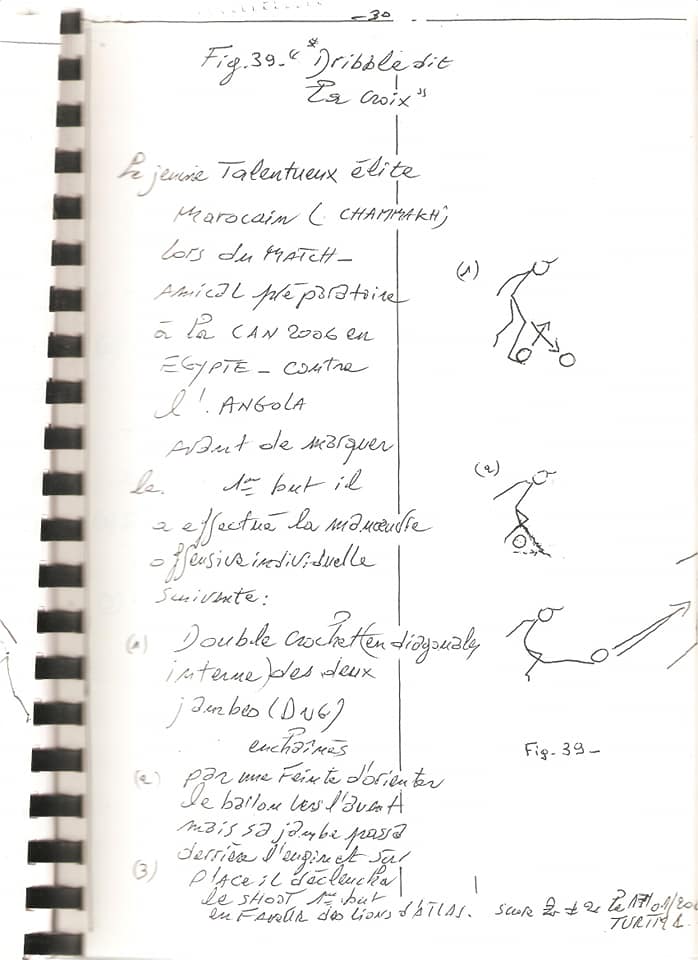 - 30
Fig.39-" * Dribble dit
La croix"
Le jeune Talentueux élite
Marocain ( CHAMMAKH)
lors du MATCH -
AMICAL préparatoire
à la CAN 2006 en
EGYPTE - contre
l'. ANGOLA
avant de marquer
le. 1er but il
a effectué la manœuvre
offensive individuelle
suivante:
(1) Double crochet (en diagonales
interne) des deux
jambes (DNG)
enchaînés
(2) par une Feinte d'orienter
le ballon vers l'avant
mais sa jambe passa
derrière l'engin et sur
(3) place il déclencha
le SHOOT 1er but
en FAVEUR des lions d'ATLAS. score
(1)
(2)
Fig. 39-